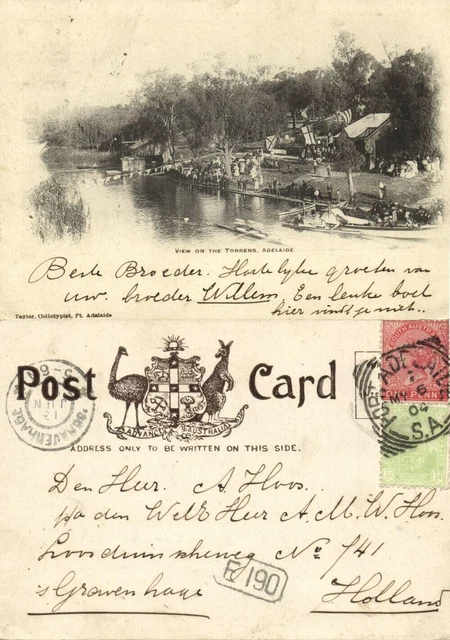 VIEW ON THE TORRENS, ADELAIDE
Beste Broeder. Hartelyke groeten van
uw. broeder Willem. Een leuke boel
hier vind je niet..
Taylor, Collotypist, Pt. Adelaide
Post Card
ADVANCE AUSTRALIA
ADDRESS ONLY TO BE WRITTEN ON THIS SIDE.
SOUTH AUSTRALIA
ONE PENNY
ADELAIDE
MY 6
04
S.A.
'SGRAVENHAGE
Den Heer. A. Hoos.
p/a den WelE Heer A. M. W. Hoos.
Loosduinscheweg No 741
's Gravenhage
Holland
190